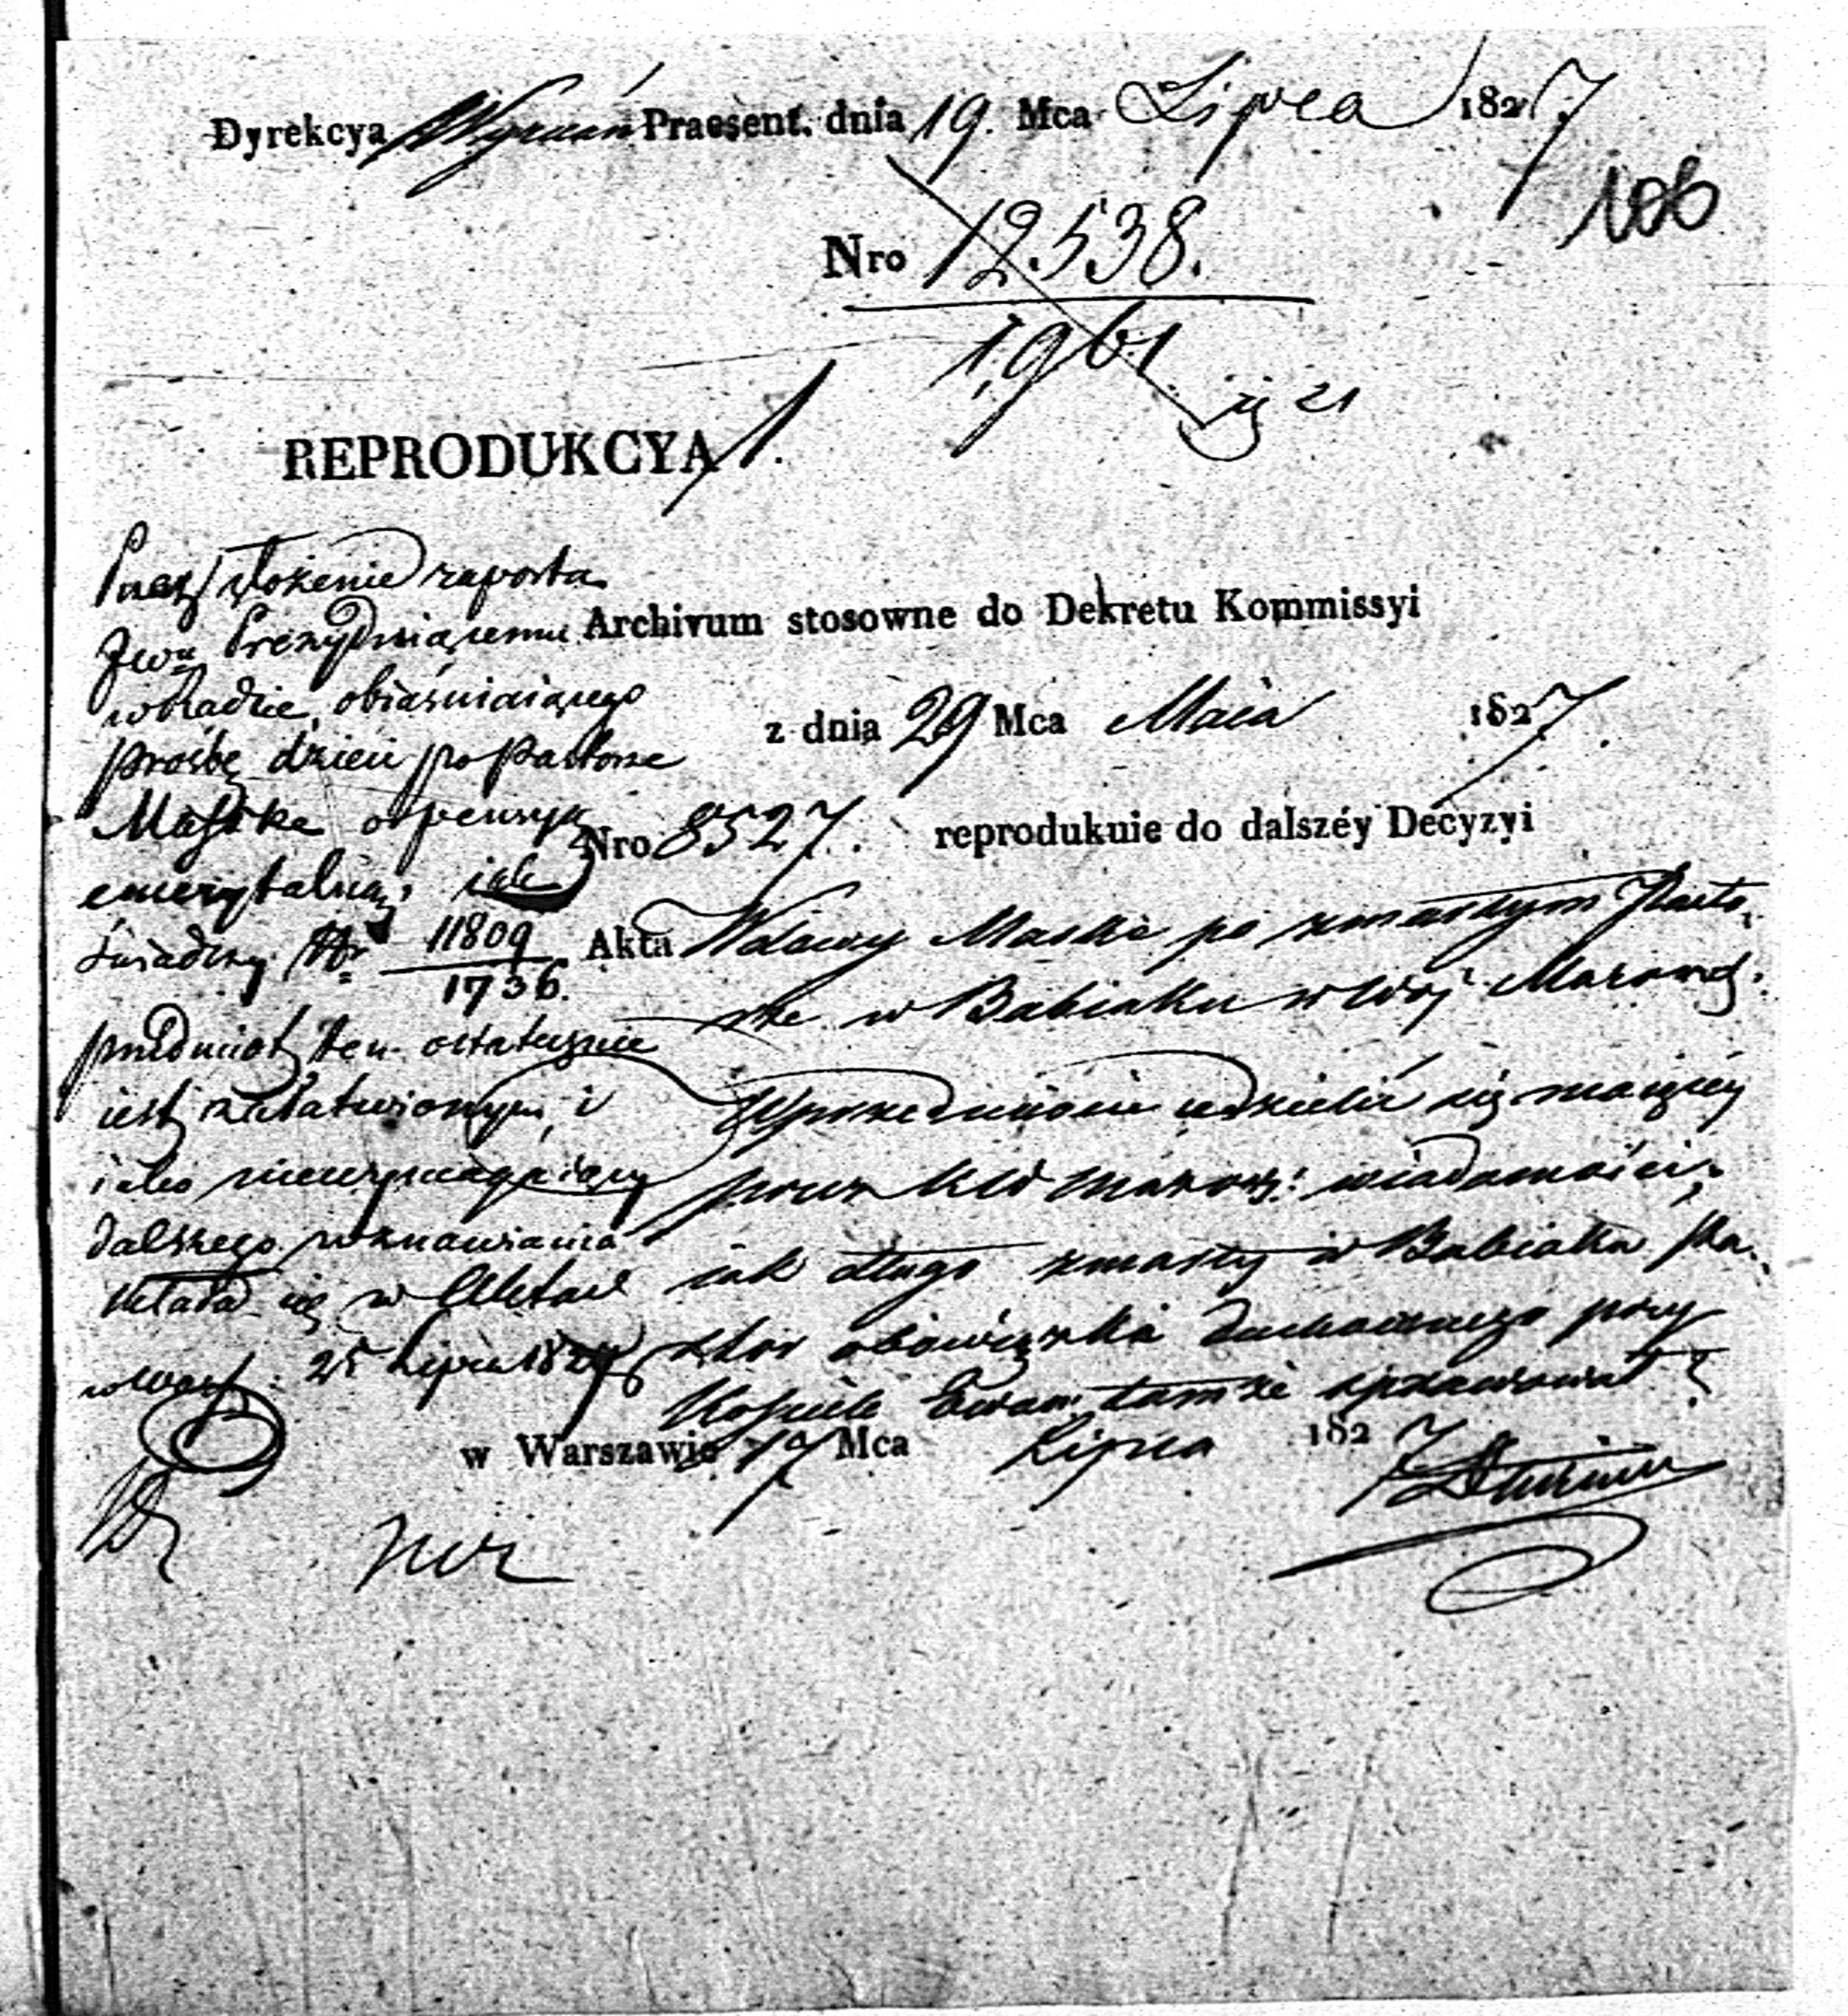 Dyrekcya Wyznań Praesent. dnia 19. Mca Lipca 1827.
106
Nro 12.538.
1,961
21
REPRODUKCYA 1.
Przez złożenie raportu
Prezydującemu
w Radzie, obiaśniaiącego
prośbę dzieci po Pastorze
Maske o pensyą
emerytalną, iak
świadczy Nr 11809
1736.
przedmiot ten ostatecznie
iest załatwionym, i
iako niewymagaiący
dalszego poznawania
składa się w Aktach
w Warsz: 25 Lipca 1827
Archivum stosowne do Dekretu Kommissyi
z dnia 29 Mca Maia 1827.
Nro 8527. reprodukuie do dalszéy Decyzyi
Akta Wdowy Maske po zmarłym Pasto-
rze w Babiaku w Woj Mazows:
Wprzedmiocie udzielić się maiącéy
przez KW Mazow: wiadomości;
iak długo zmarły w Babiaku Pa-
stor obowiązki duchownego przy
Kościele Ewan: tamże sprawował?
w Warszawie 17 Mca Lipca 1827